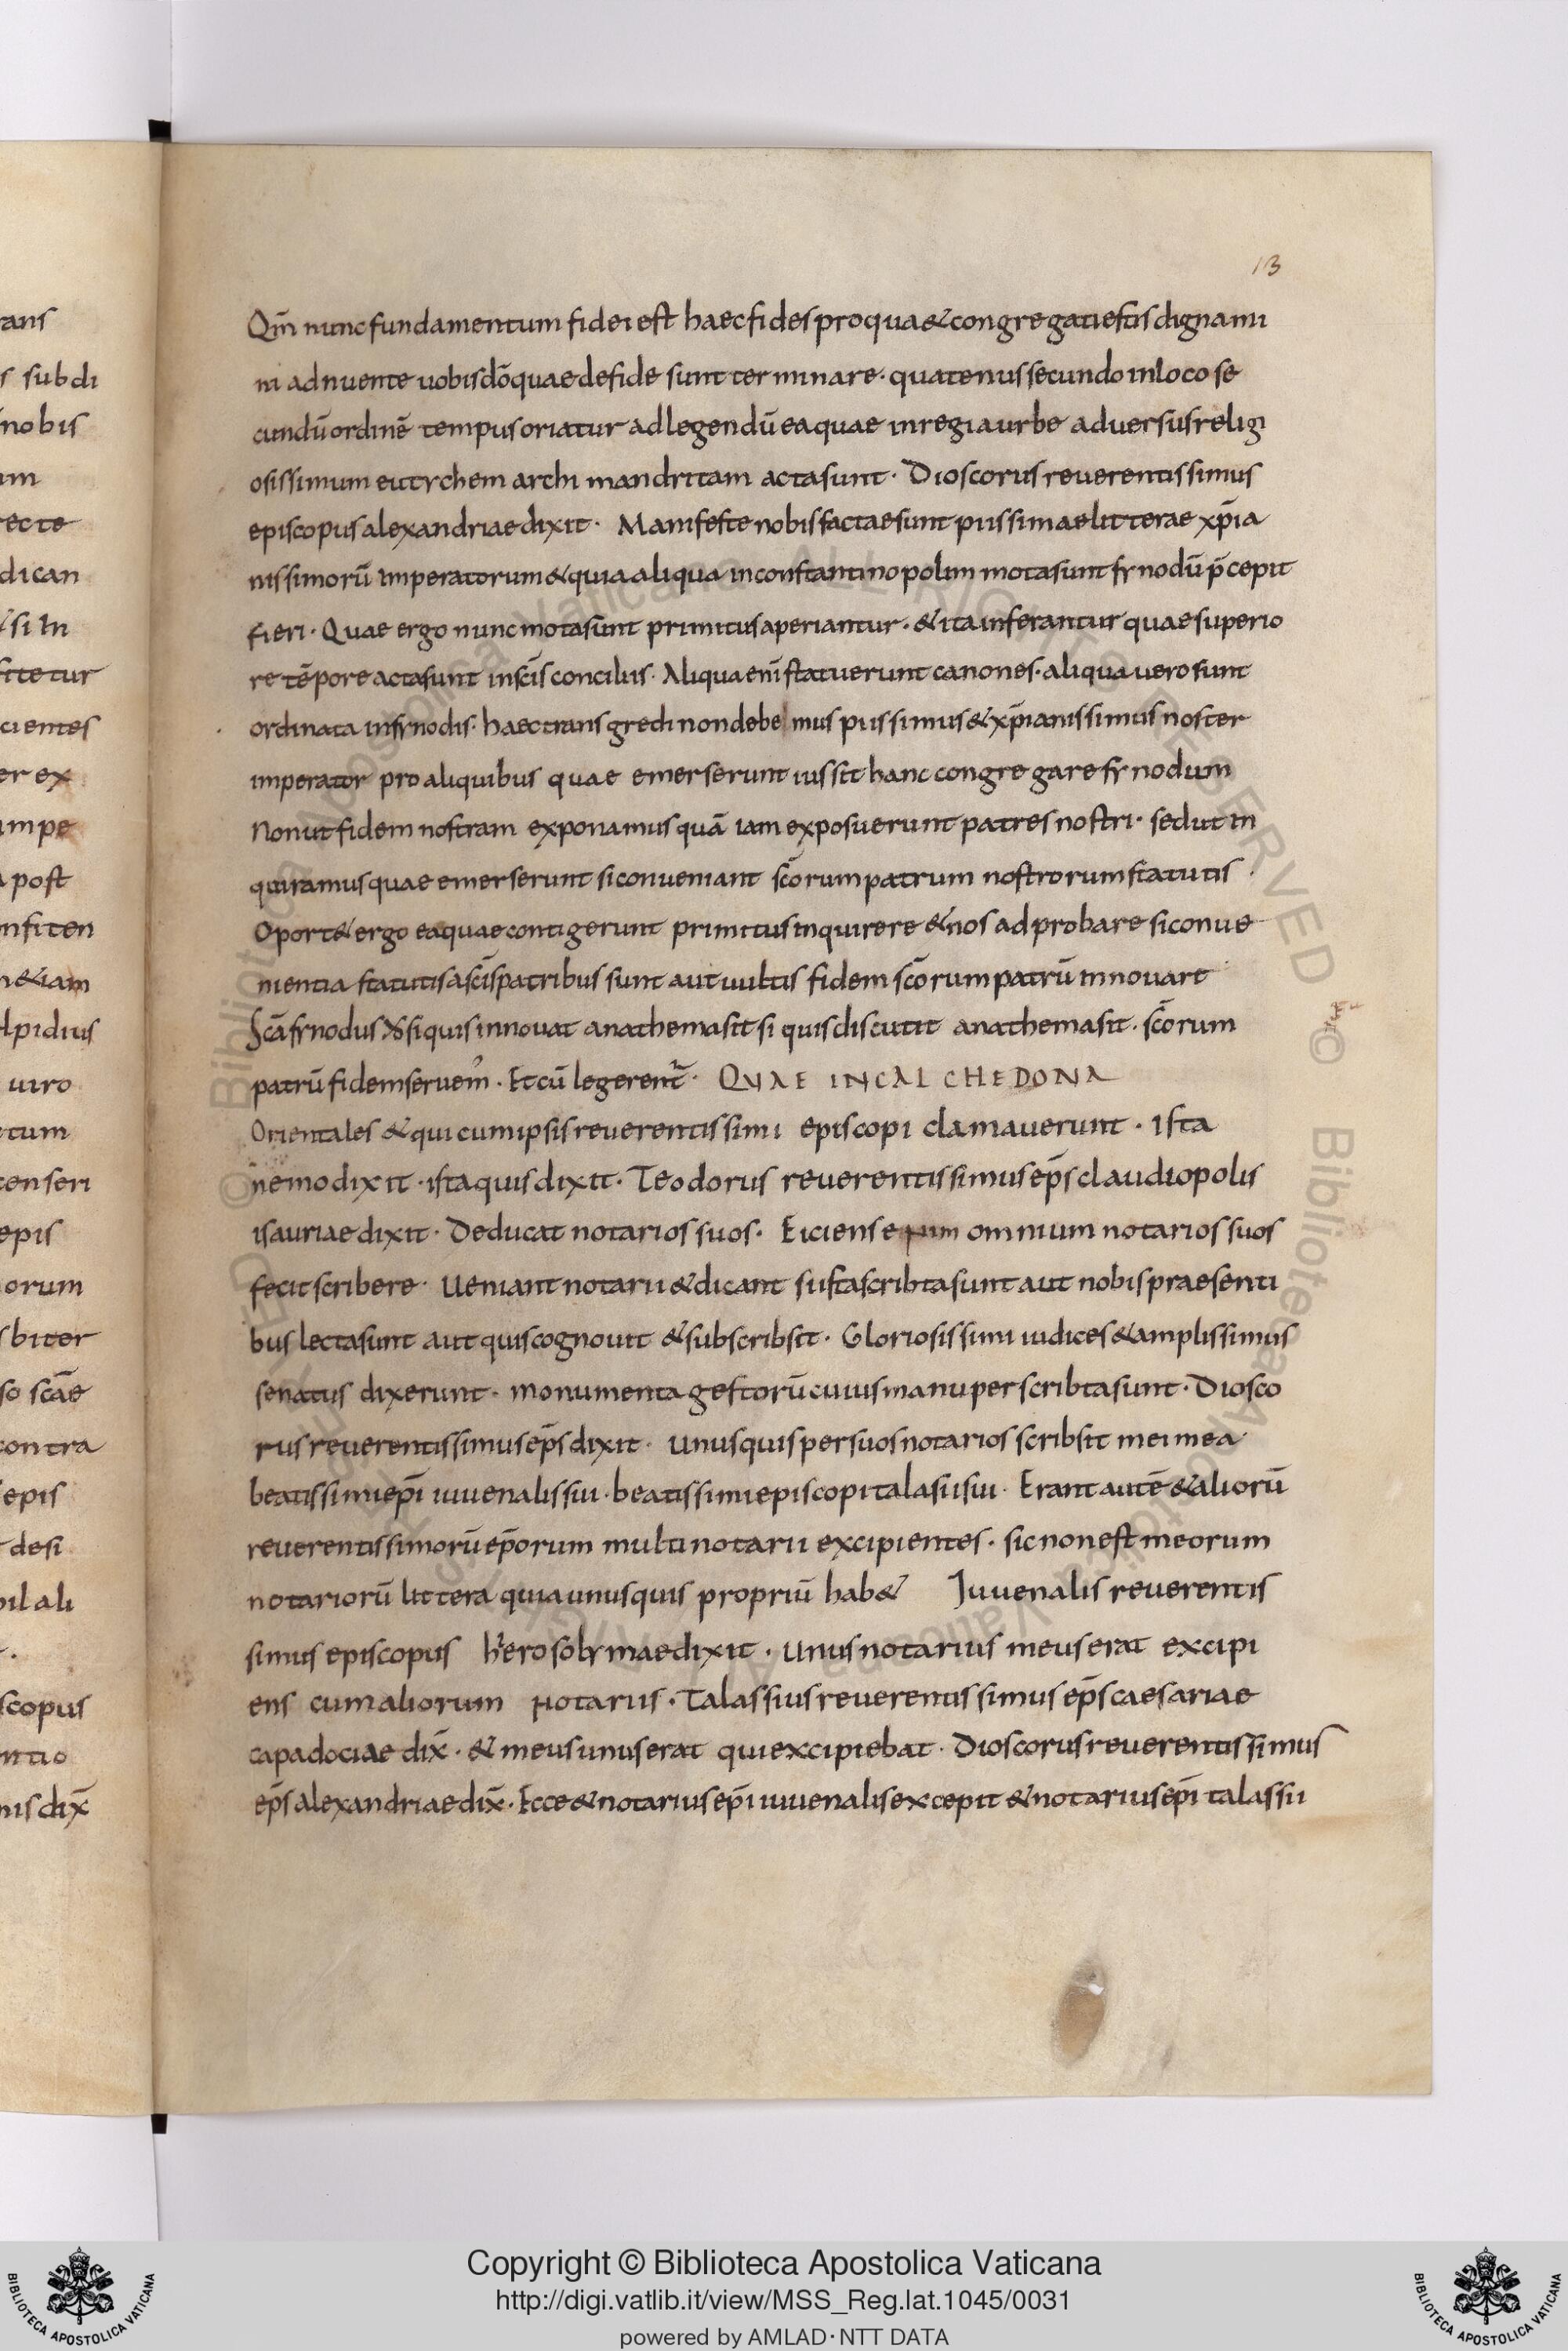 13
Qm̄ nunc fundamentum fidei est haec fides pro qua & congregati estis dignami
ni adnuente uobis dō quae de fide sunt terminare · quatenus secundo in loco se
cundū ordinē tempus oriatur ad legendū ea quae in regia urbe aduersus relig
osissimum eutychem archimandritam acta sunt · Dioscorus reuerentissimus
episcopus alexandriae dixit · Manifeste nobis factae sunt piissimae litterae xp̄ia
nissimorū imperatorum & quia aliqua in constantinopolim mota sunt synodū p̄cepit
fieri · Quae ergo nunc mota sunt primitus aperiantur · & ita inferantur quae superio
re tēpore acta sunt in sc̄is conciliis · Aliqua eni̅ statuerunt canones · aliqua uero sunt
ordinata in synodis · haec transgredi non debe mus piissimus & xp̄ianissimus noster
imperator pro aliquibus quae emerserunt iussit hanc congregare synodum
Non ut fidem nostram exponamus quā iam exposuerunt patres nostri · sed ut in
quiramus quae emerserunt si conueniant sc̄orum patrum nostrorum statutis ·
Oport& ergo ea quae contigerunt primitus inquirere & nos adprobare si conue
nientia statutis a sc̄is patribus sunt aut uultis fidem sc̄orum patrū innouare
Sc̄a synodus dx̄ si quis innouat anathema sit si quis discutit anathema sit · sc̄orum
patrū fidem seruem᾽ · Et cū legerent̄ · QUAE IN CALCHEDONA
Orientales & qui cum ipsis reuerentissimi episcopi clamauerunt · Ista
nemo dixit · ista quis dixit · Teodorus reuerentissimus ep̄s claudiopolis
isauriae dixit · Deducat notarios suos · Eiciens enim omnium notarios suos
fecit scribere · Ueniant notarii & dicant si ista scribta sunt aut nobis praesenti
bus lecta sunt aut quis cognouit & subscribsit · Gloriosissimi iudices & amplissimus
senatus dixerunt · monumenta gestorū cuius manu perscribta sunt · Diosco
rus reuerentissimus ep̄s dixit · Unusquis per suos notarios scribsit mei mea
beatissimi ep̄i iuuenalis sui · beatissimi episcopi talasii sui · Erant autē & aliorū
reuerentissimorū ep̄orum multi notarii excipientes · sic non est meorum
notariorū littera quia unusquis propriū hab& Iuuenalis reuerentis
simus episcopus hierosolymae dixit · Unus notarius meus erat excipi
ens cum aliorum notariis · Talassius reuerentissimus ep̄s caesariae
capadociae dix̄ · & meus unus erat qui excipiebat · Dioscorus reuerentissimus
ep̄s alexandriae dix̄ · Ecce & notarius ep̄i iuuenalis excepit & notarius ep̄i talassii
rans
s subdi
nobis
um
recte
dican
& si in
fitetur
cientes
er ex
impe
a post
nfiten
n & iam
lpidius
uiro
tum
censeri
epis
orum
sbiter
so sc̄ae
contra
epis
desi
il ali
scopus
ntio
nis dix̄
© Biblioteca Apostolica Vaticana ALL RIGHTS RESERVED © Biblioteca Apostolica Vaticana ALL RIGHTS RESERVED
Copyright © Biblioteca Apostolica Vaticana
http://digi.vatlib.it/view/MSS_Reg.lat.1045/0031
powered by AMLAD·NTT DATA
BIBLIOTECA APOSTOLICA VATICANA
BIBLIOTECA APOSTOLICA VATICANA